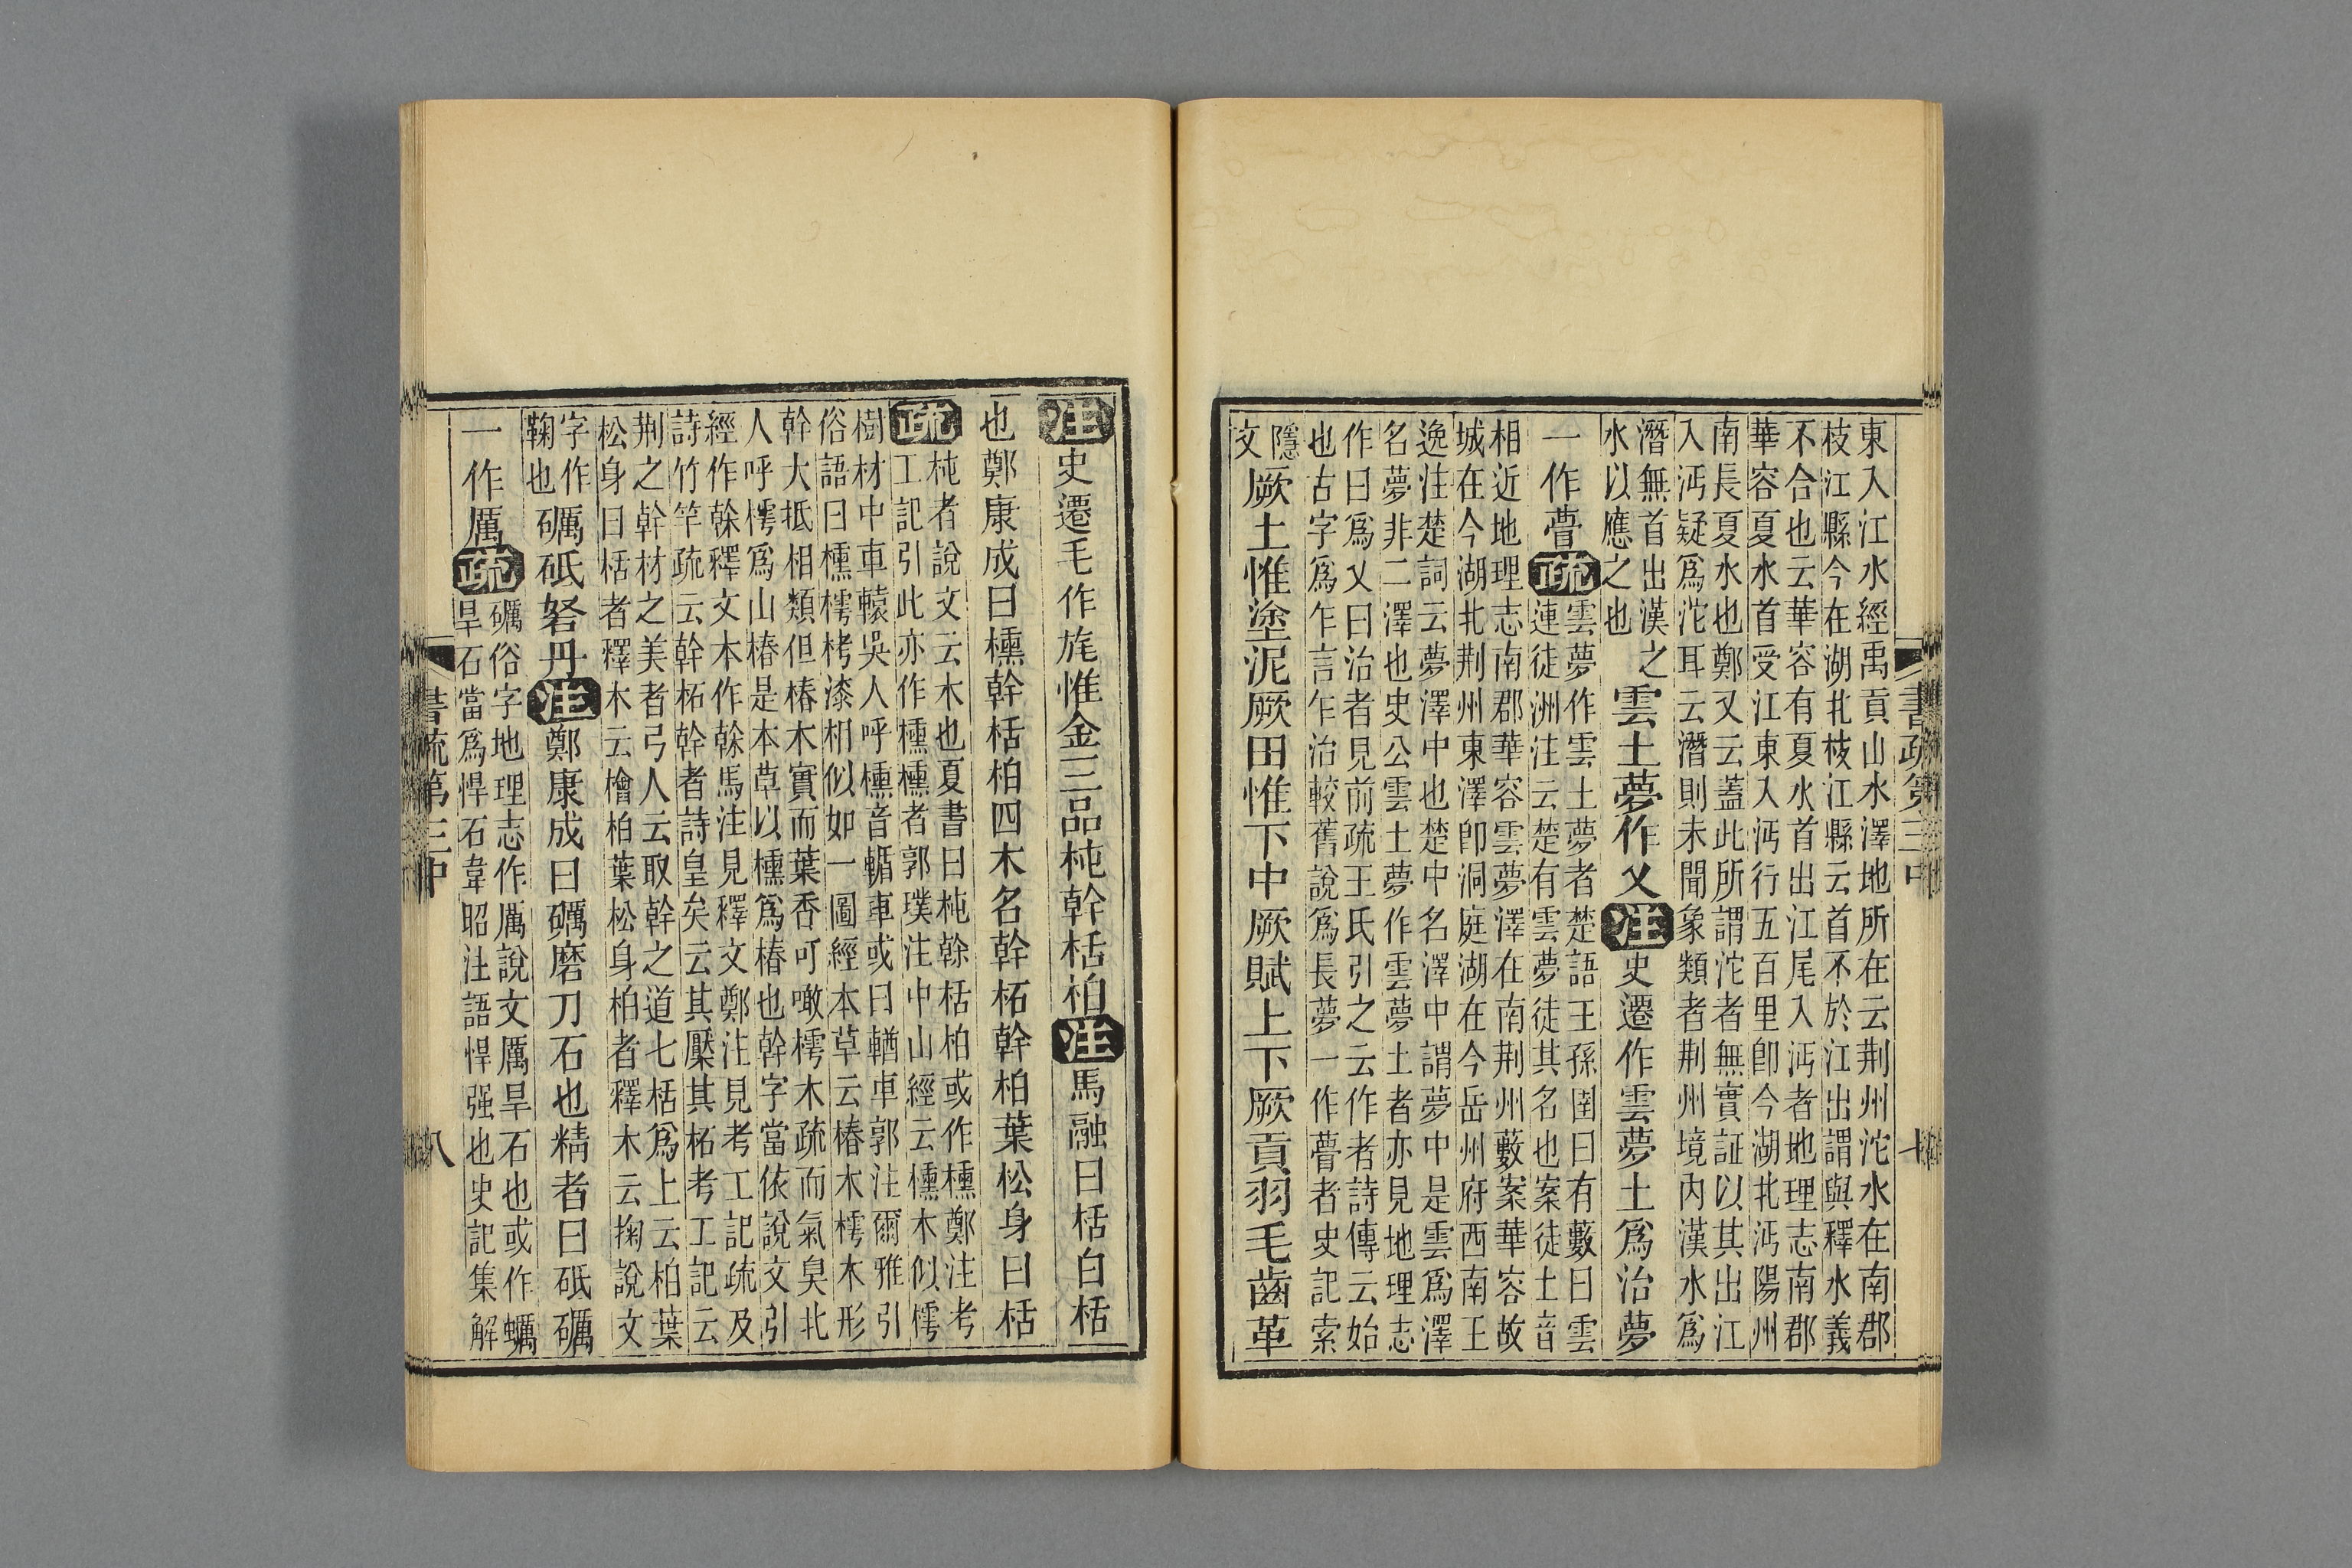 東入江水經禹貢山水澤地所在云荆州沱水在南郡
枝江縣今在湖北枝江縣云首不於江出謂與釋水義
不合也云華容有夏水首出江尾入沔者地理志南郡
華容夏水首受江東入沔行五百里卽今湖北沔陽州
南長夏水也鄭又云蓋此所謂沱者無實証以其出江
入沔疑爲沱耳云潛則未聞象類者荆州境內漢水爲
潛無首出漢之
水以應之也
雲土夢作乂注史遷作雲夢土爲治夢
一作瞢疏
雲夢作雲土夢者楚語王孫圉曰有藪曰雲
連徒洲注云楚有雲夢徒其名也案徒土音
相近地理志南郡華容雲夢澤在南荆州藪案華容故
城在今湖北荆州東澤卽洞庭湖在今岳州府西南王
逸注楚詞云夢澤中也楚中名澤中謂夢中是雲爲澤
名夢非二澤也史公雲土夢作雲夢土者亦見地理志
作曰爲乂曰治者見前疏王氏引之云作者詩傳云始
也古字爲乍言乍治較舊說爲長夢一作瞢者史記索
隱
文
厥土惟塗泥厥田惟下中厥賦上下厥貢羽毛齒革
書疏第三中
七
注史遷毛作旄惟金三品杶幹栝柏注馬融曰栝白栝
也鄭康成曰櫄幹栝柏四木名幹柘幹柏葉松身曰栝
疏
杶者說文云木也夏書曰杶榦栝柏或作櫄鄭注考
工記引此亦作櫄櫄者郭璞注中山經云櫄木似樗
樹材中車轅吳人呼櫄音輴車或曰輶車郭注爾雅引
俗語曰櫄樗栲漆相似如一圖經本草云椿木樗木形
幹大抵相類但椿木實而葉香可噉樗木疏而氣臭北
人呼樗爲山椿是本草以櫄爲椿也幹字當依說文引
經作榦釋文本作榦馬注見釋文鄭注見考工記疏及
詩竹竿疏云幹柘幹者詩皇矣云其檿其柘考工記云
荆之幹材之美者弓人云取幹之道七栝爲上云柏葉
松身曰栝者釋木云檜柏葉松身柏者釋木云掬說文
字作
鞠也
礪砥砮丹注鄭康成曰礪磨刀石也精者曰砥礪
一作厲疏
礪俗字地理志作厲說文厲旱石也或作蠣
旱石當爲悍石韋昭注語悍强也史記集解
書疏第三中
八